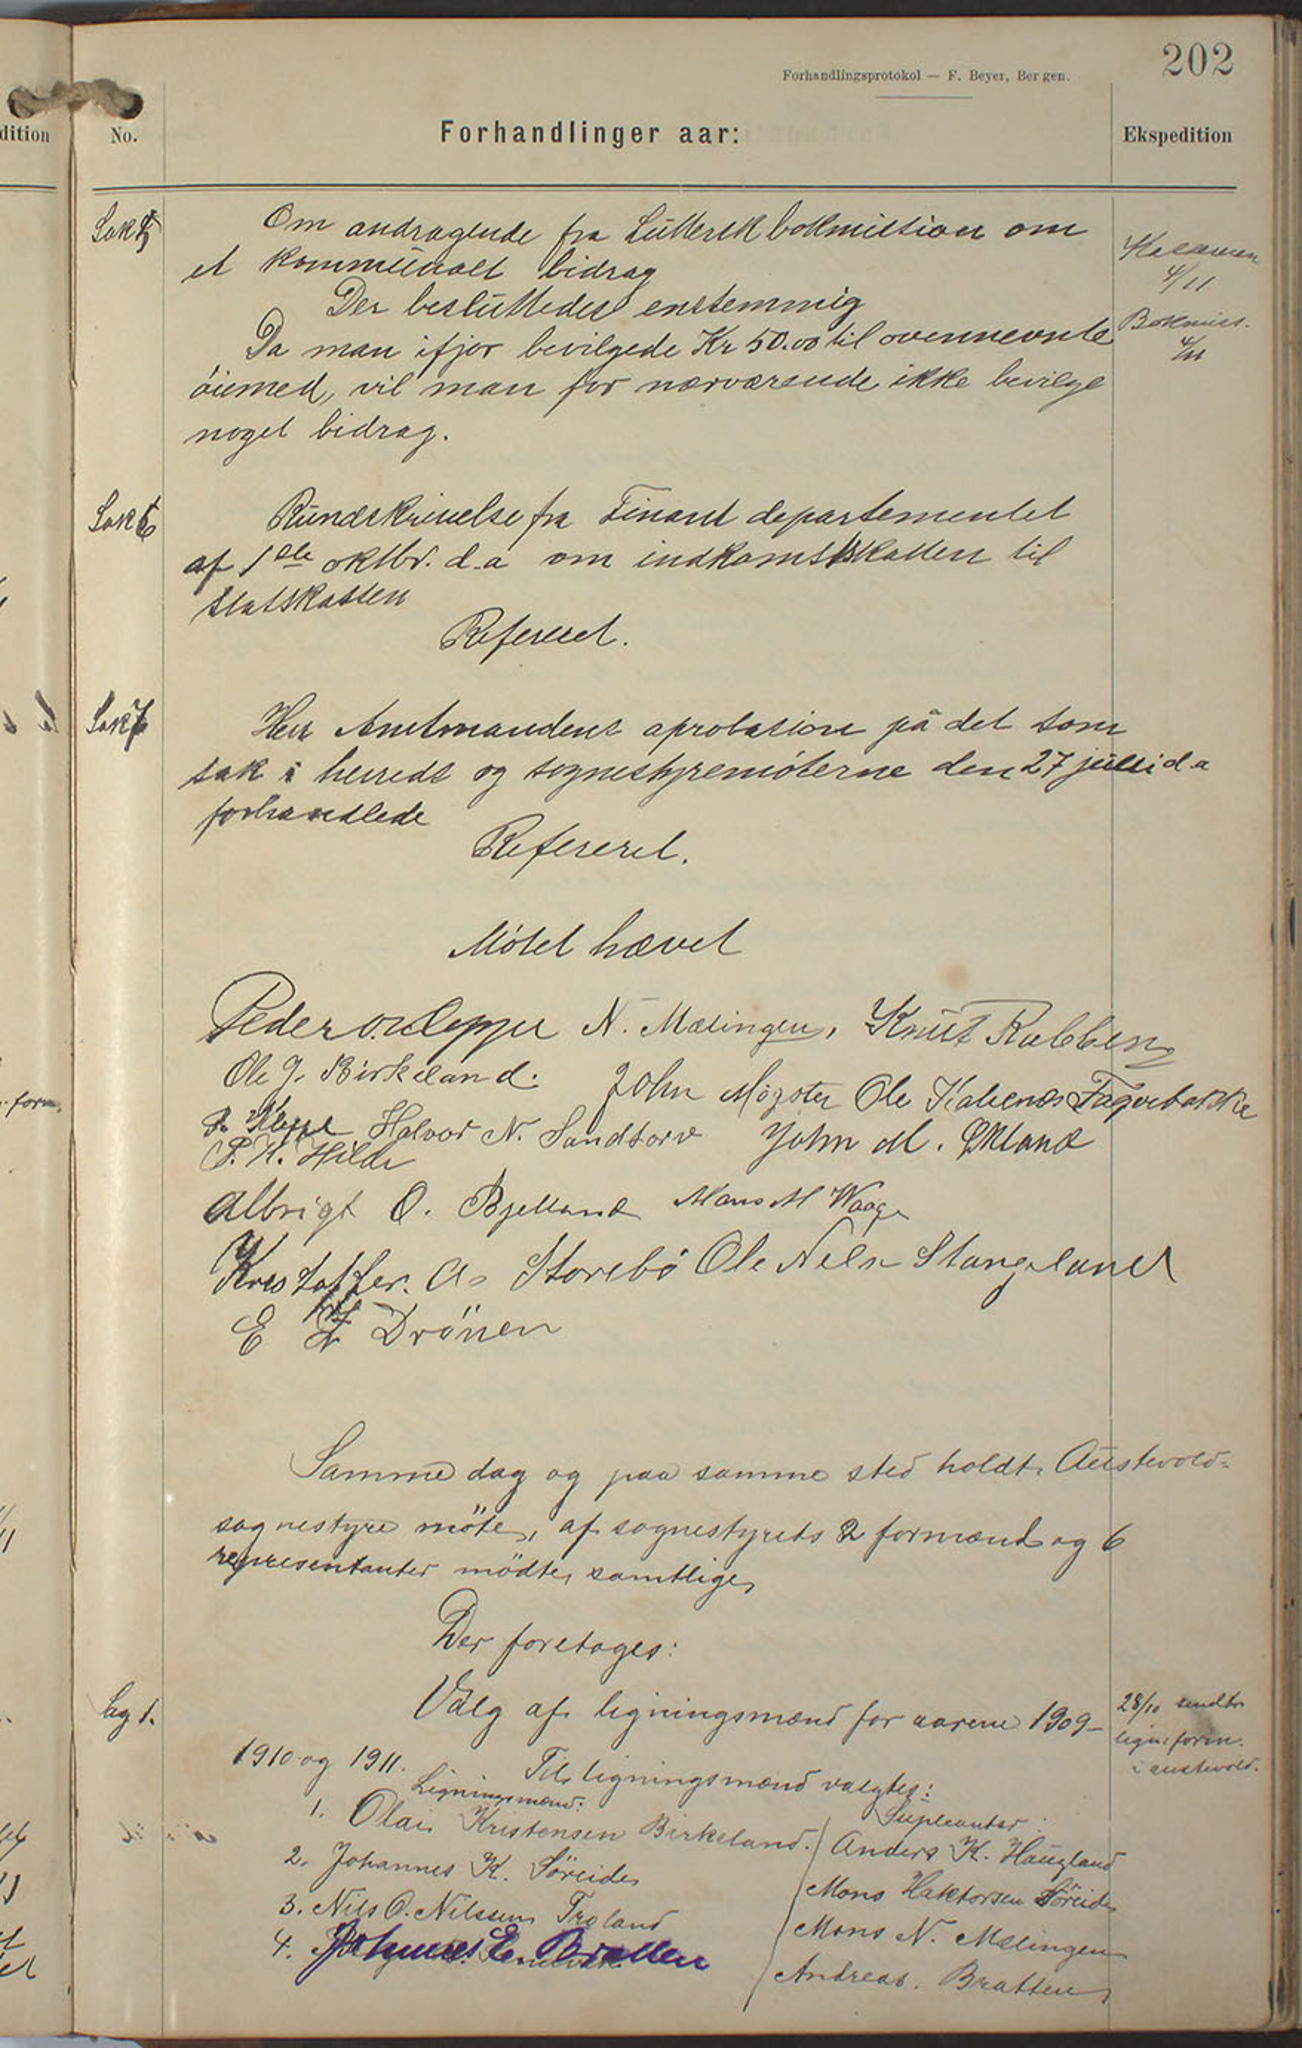 202
Forhandlingsprotokol — F. Beyer, Bergen.
dition
No.
Forhandlinger aar:
Ekspedition
Sak 5
Om andragende fra Luttersk bokmission om
et kommunalt bidrag
Der besluttedes enstemmig
Da man ifjor bevilgede Kr 50.00 til ovennevnte
öiemed, vil man for nærværende ikke bevilge
noget bidrag.
4/11
Bokmiss.
4/11
Sak 6
Rundskrivelse fra Finansdepartementet
af 1ste oktbr. d.a om indkomstskatten til
statskassen
Refereret.
Sak 7
Herr Amtmandens aprobasion på det som
sak i herreds og sognestyremöterne den 27 juli d.a
forhandlede
Refereret.
Mötet hævet
Peder O. Kleppe N. Mælingen, Knut Rabben
Ole J. Birkeland. John Møgster Ole Kalvenes Fagerbakke
P. Kleppe Halvor N. Sandtorv John M. Økland
P. N. Hilde
Albrigt O. Bjelland Mons M Waage
Kristoffer. A. Storebö Ole Nels. Stangeland
E Drönen
Samme dag og paa samme sted holdt Austevold-
sognestyre möte, af sognestyrets 2 formænd og 6
representanter mödte samtlige,
Der foretages:
Sag 1.
Valg af ligningsmænd for aarene 1909-
1910 og 1911. Til ligningsmænd valgtes:
28/10 sendt
lign. form.
i austevold.
Ligningsmænd: Supleanter:
1. Olai Kristensen Birkeland. Anders K. Haugland
2. Johannes K. Söreide Mons Haktorsen Söreide
3. Nils O. Nilssen Troland Mons N. Mælingen
4. Johannes E. Bratten Andreas. Bratten